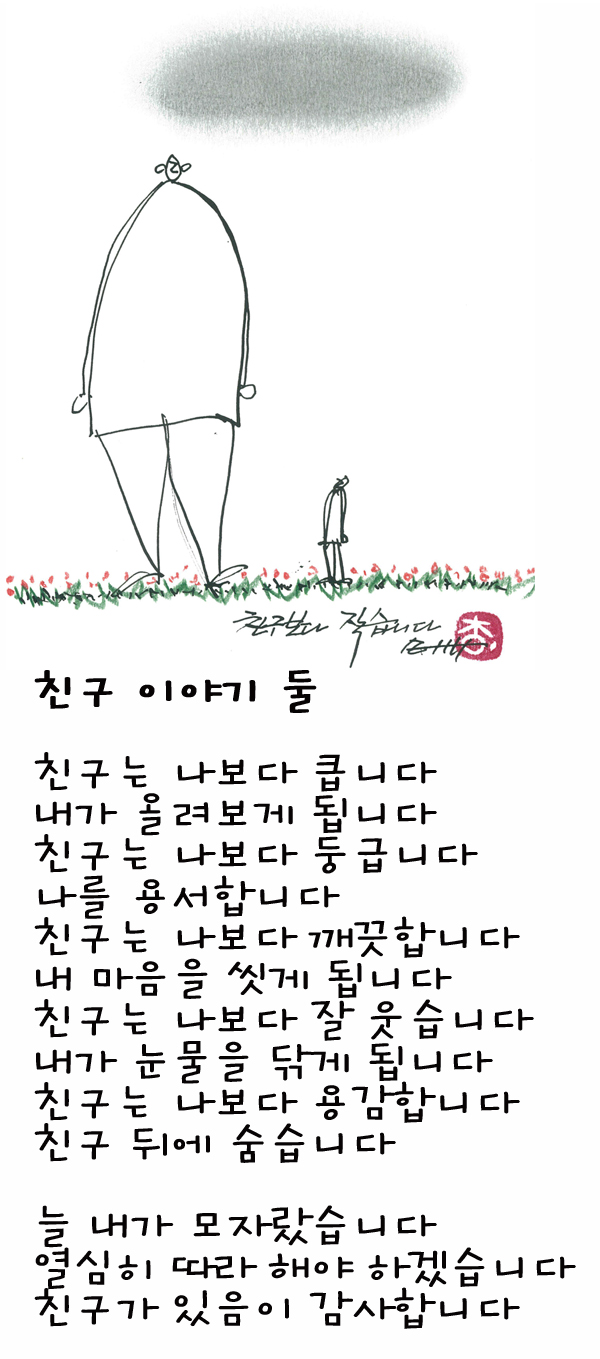 친구보다 작습니다
친구 이야기 둘
친구는 나보다 큽니다
내가 올려보게 됩니다
친구는 나보다 둥급니다
나를 용서합니다
친구는 나보다 깨끗합니다
내 마음을 씻게 됩니다
친구는 나보다 잘 웃습니다
내가 눈물을 닦게 됩니다
친구는 나보다 용감합니다
친구 뒤에 숨습니다
늘 내가 모자랐습니다
열심히 따라 해야 하겠습니다
친구가 있음이 감사합니다